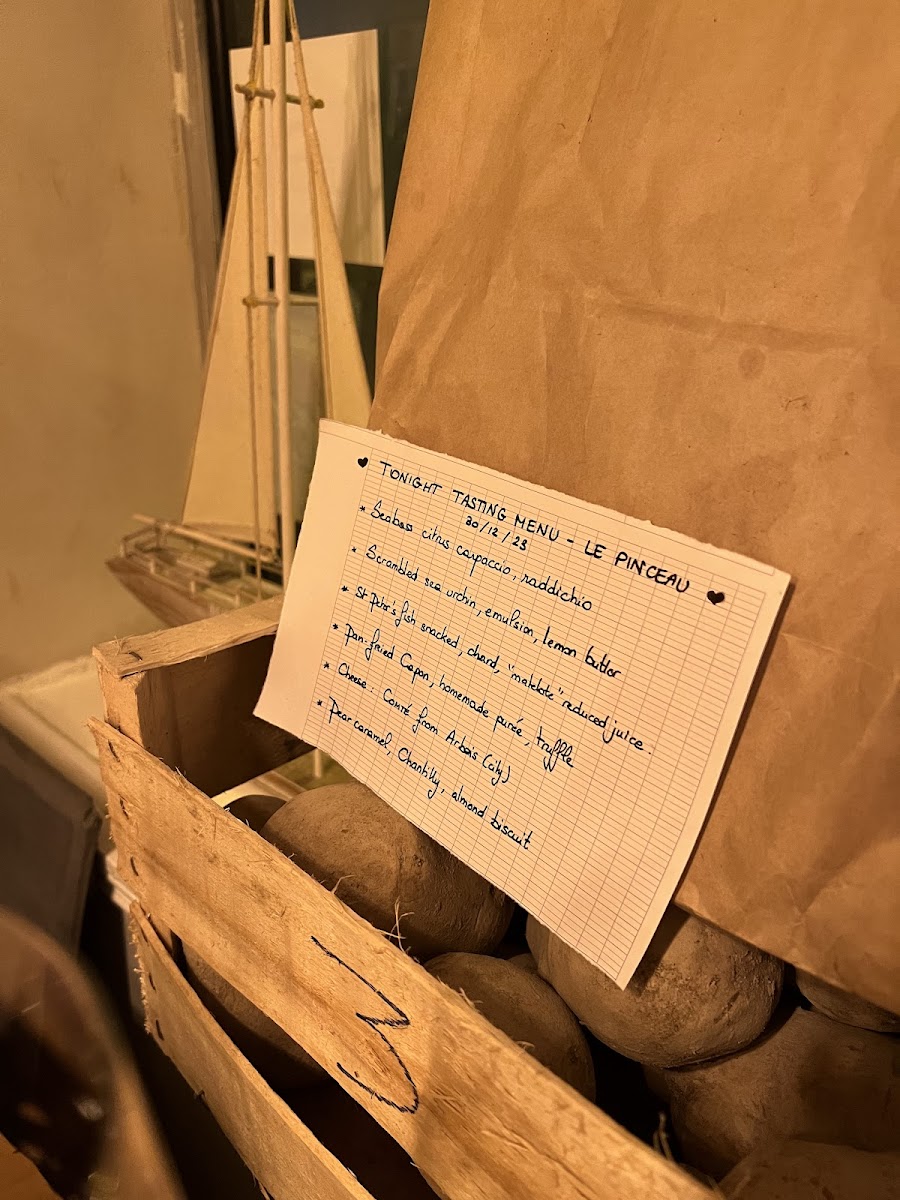 ♥ TONIGHT TASTING MENU - LE PINCEAU ♥
30/12/23
* Seabass citrus carpaccio, raddichio
* Scrambled sea urchin, emulsion, lemon butter
* St Peter's fish snacked, chard, "matelote" reduced juice.
* Pan-fried Capon, homemade purée, truffle
* Cheese: Comté from Arbois (city)
* Pear caramel, Chantilly, almond biscuit
3